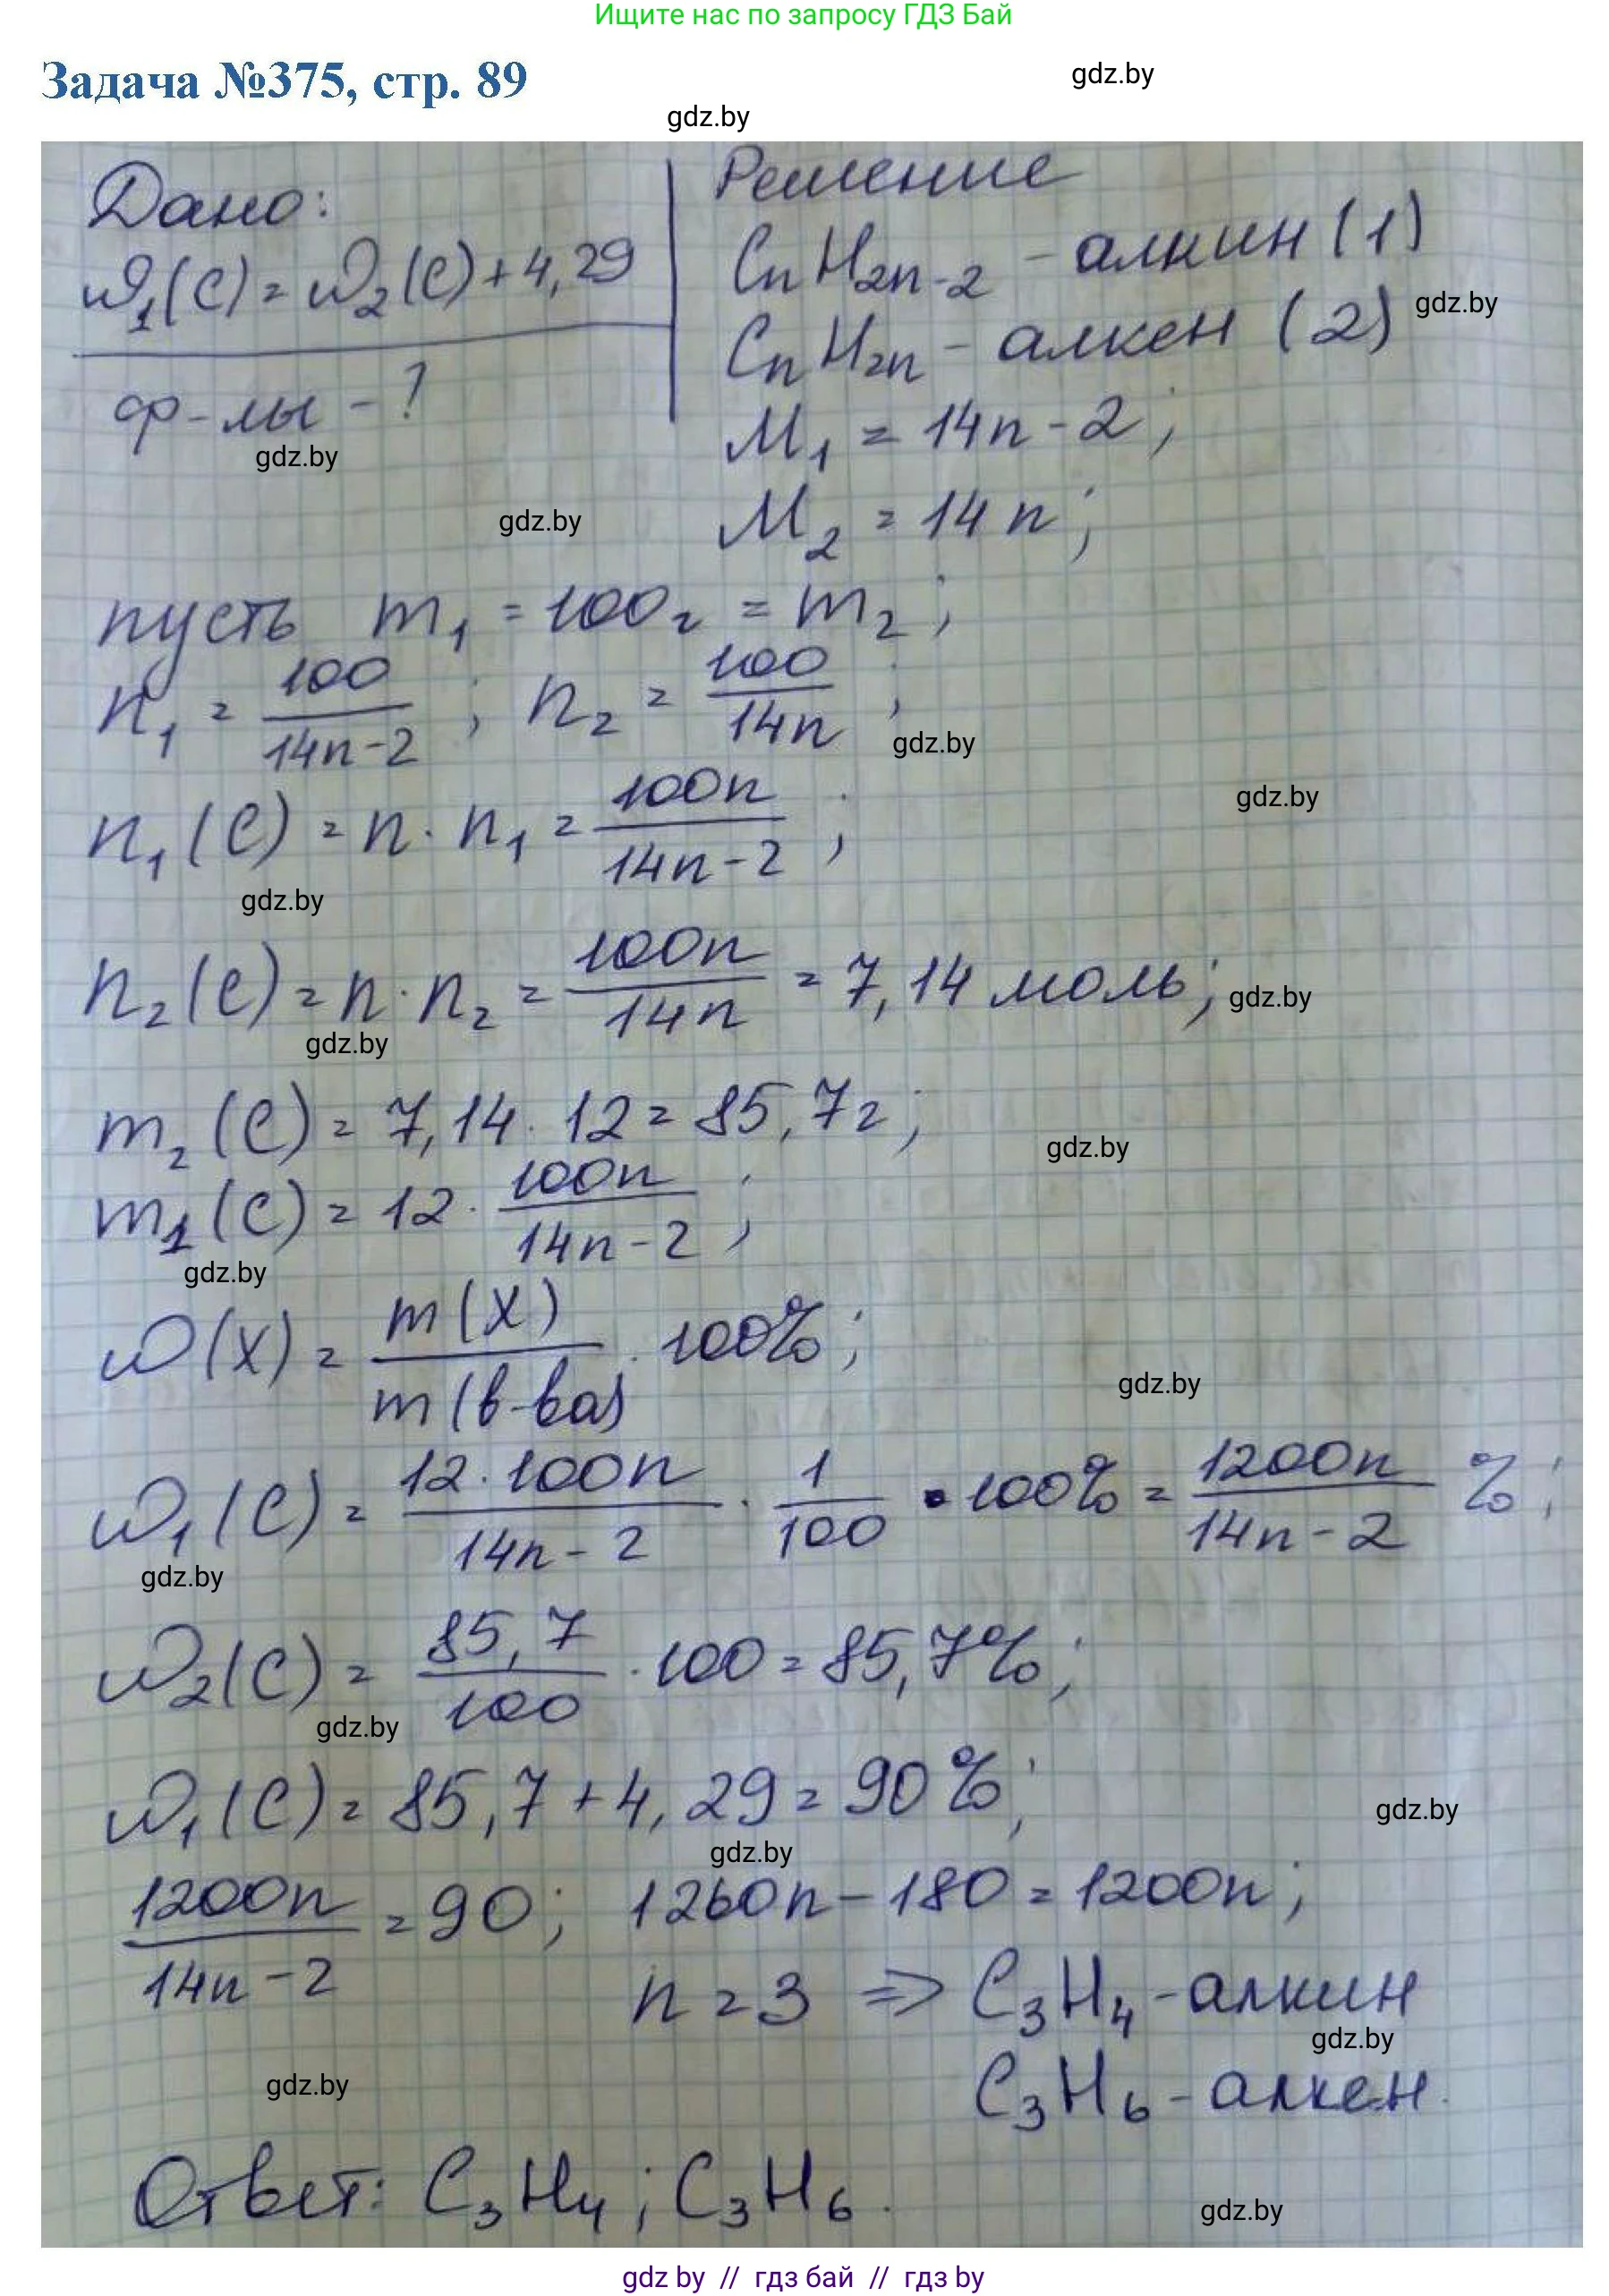 Ищите нас по запросу ГДЗ Бай
Задача №375, стр. 89
gdz.by
gdz.by
Дано:
ω₁(C) = ω₂(C) + 4,29
ф-лы - ?
gdz.by
Решение
CnH2n-2 - алкин (1)
CnH2n - алкен (2)
gdz.by
M₁ = 14n - 2;
gdz.by
M₂ = 14n;
пусть m₁ = 100г = m₂;
n₁ = 100/(14n-2); n₂ = 100/14n;
gdz.by
gdz.by
n₁(C) = n · n₁ = 100n/(14n-2);
gdz.by
n₂(C) = n · n₂ = 100n/14n = 7,14 моль;
gdz.by
gdz.by
m₂(C) = 7,14 · 12 = 85,7г;
gdz.by
m₁(C) = 12 · 100n/(14n-2);
gdz.by
ω(X) = m(X)/m(в-ва) · 100%;
gdz.by
ω₁(C) = 12·100n/(14n-2) · 1/100 · 100% = 1200n/(14n-2) %;
gdz.by
ω₂(C) = 85,7/100 · 100 = 85,7%;
gdz.by
ω₁(C) = 85,7 + 4,29 = 90%;
gdz.by
gdz.by
1200n/(14n-2) = 90; 1260n - 180 = 1200n;
n = 3 => C₃H₄ - алкин
gdz.by
gdz.by
C₃H₆ - алкен.
Ответ: C₃H₄; C₃H₆.
gdz.by
gdz by // гдз бай // гдз by